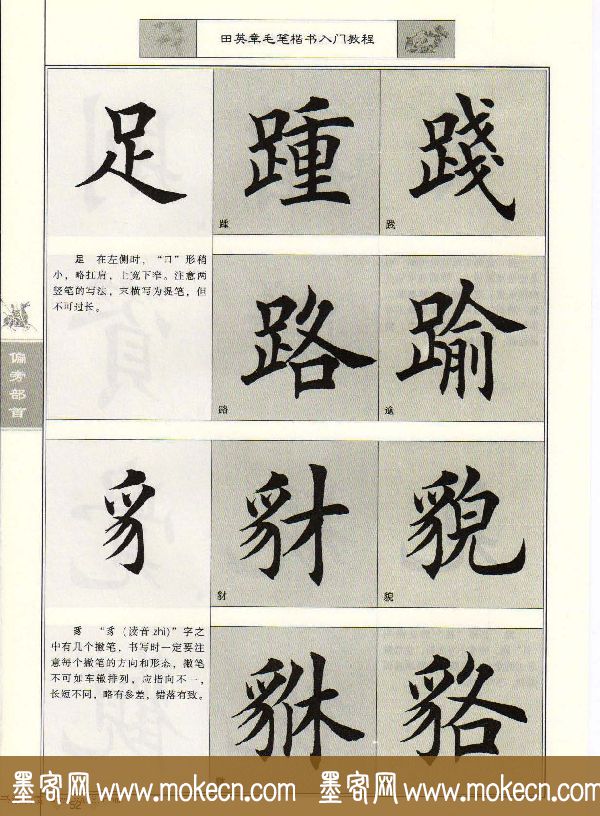 田英章毛笔楷书入门教程
足
踵
践
踵
践
足 在左侧时，“口”形稍
小，略扛肩，上宽下窄。注意两
竖笔的写法，末横写为提笔，但
不可过长。
路
踰
路
偏旁部首
豸
豺
貌
豺
貌
豸 “豸（读音zhì）”字之
中有几个撇笔，书写时一定要注
意每个撇笔的方向和形态，撇笔
不可如车辙排列，应指向不一，
长短不同，略有参差，错落有致。
貅
貉
52
墨客网 www.mokecn.com 墨客网 www.mokecn.com